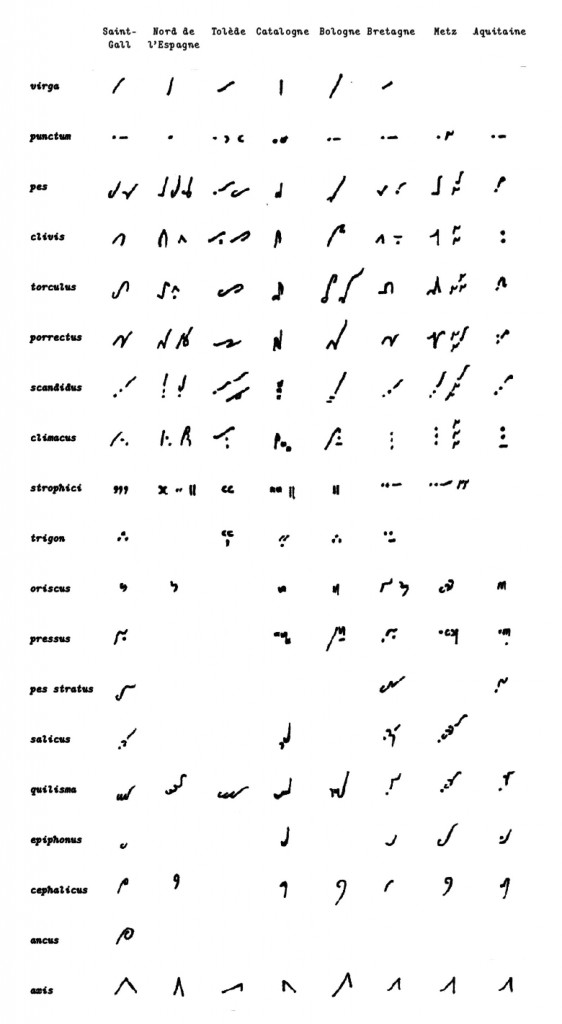 Saint-Gall Nord de l'Espagne Tolède Catalogne Bologne Bretagne Metz Aquitaine
virga
punctum
pes
clivis
torculus
porrectus
scandidus
climacus
strophici
trigon
oriscus
pressus
pes stratus
salicus
quilisma
epiphonus
cephalicus
ancus
axis